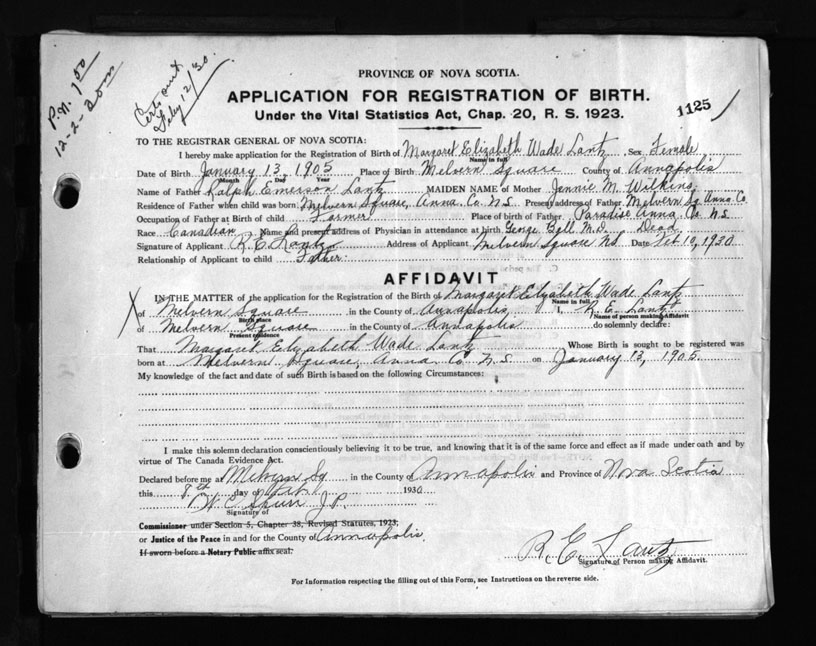 P.N. 1.00
12-2-30 m
Cert out
Feby 12/30.
PROVINCE OF NOVA SCOTIA.
APPLICATION FOR REGISTRATION OF BIRTH.
Under the Vital Statistics Act, Chap. 20, R. S. 1923.
1125
TO THE REGISTRAR GENERAL OF NOVA SCOTIA:
I hereby make application for the Registration of Birth of Margaret Elizabeth Wade Lantz Sex Female
Name in full
Date of Birth January 13, 1905 Place of Birth Melvern Square County of Annapolis
Month Day Year
Name of Father Ralph Emerson Lantz MAIDEN NAME of Mother Jennie M. Wilkins
Residence of Father when child was born Melvern Square, Anna. Co. N.S. Present address of Father Melvern Sq Anna. Co.
Occupation of Father at Birth of child Farmer Place of birth of Father Paradise Anna. Co. N.S.
Race Canadian Name and present address of Physician in attendance at birth George Bell M.D. Dead
Signature of Applicant R. E. Lantz Address of Applicant Melvern Square N.S. Date Feb 10, 1930
Relationship of Applicant to child Father.
AFFIDAVIT
IN THE MATTER of the application for the Registration of the Birth of Margaret Elizabeth Wade Lantz
Name in full
X of Melvern Square in the County of Annapolis I, R. E. Lantz
Birth place Name of person making Affidavit
of Melvern Square in the County of Annapolis do solemnly declare:
Present residence
That Margaret Elizabeth Wade Lantz Whose Birth is sought to be registered was
born at Melvern Square, Anna Co N.S. on January 13, 1905.
My knowledge of the fact and date of such Birth is based on the following Circumstances:
I make this solemn declaration conscientiously believing it to be true, and knowing that it is of the same force and effect as if made under oath and by
virtue of The Canada Evidence Act.
Declared before me at Melvern Sq in the County of Annapolis and Province of Nova Scotia
this 8th day of Feb 1930
W. C. Spurr J.P.
Signature of
Commissioner under Section 5, Chapter 38, Revised Statutes, 1923,
or Justice of the Peace in and for the County of Annapolis.
If sworn before a Notary Public affix seal.
R. E. Lantz
Signature of Person making Affidavit.
For Information respecting the filling out of this Form, see Instructions on the reverse side.